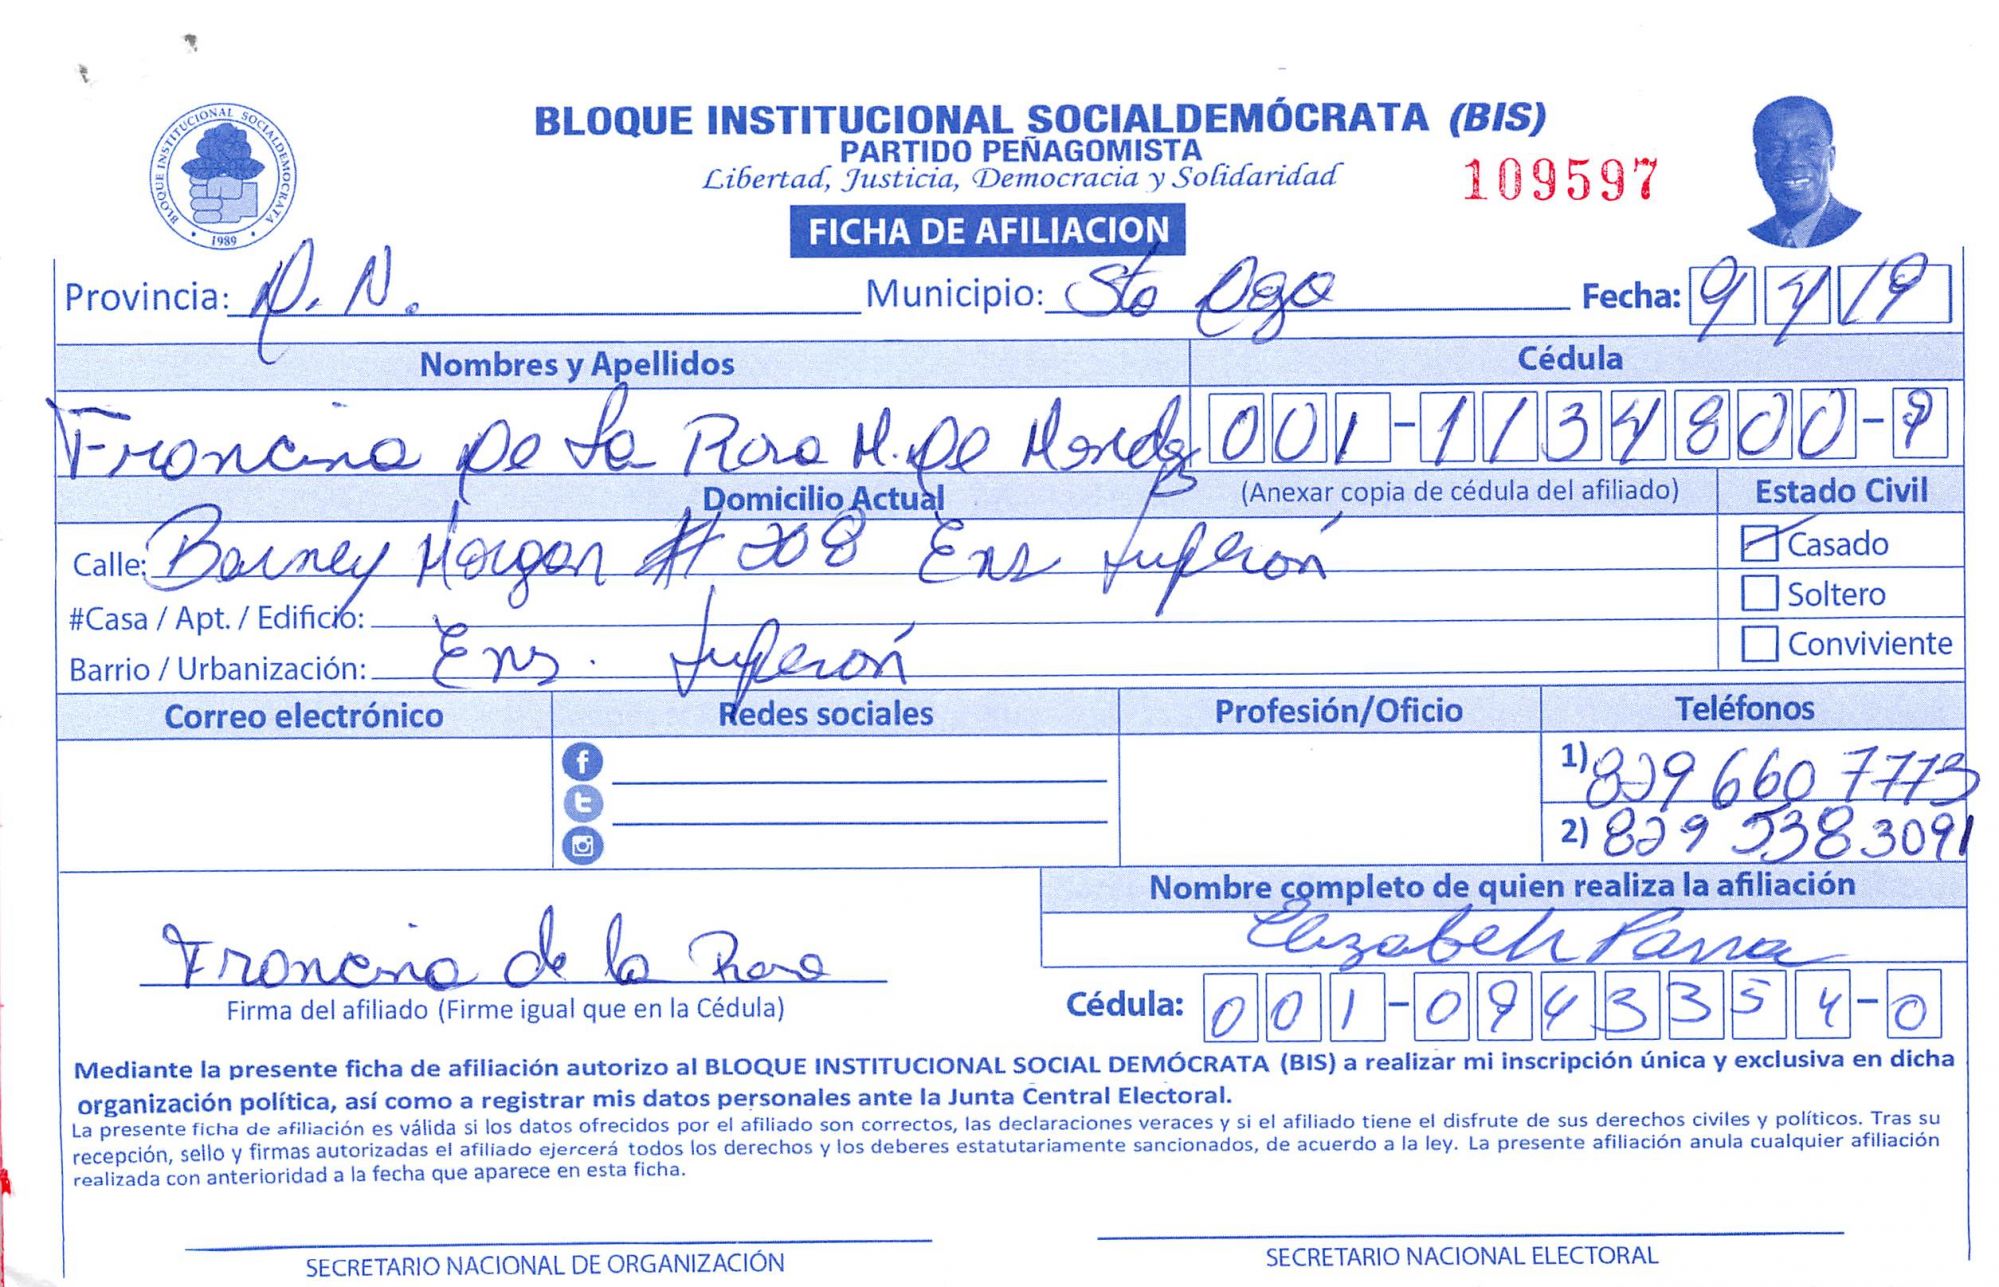 BLOQUE INSTITUCIONAL SOCIALDEMÓCRATA (BIS)
PARTIDO PEÑAGOMISTA
Libertad, Justicia, Democracia y Solidaridad
109597
BLOQUE INSTITUCIONAL SOCIALDEMOCRATA
1989
FICHA DE AFILIACION
Provincia: D. N. Municipio: Sto Dgo Fecha: 9/4/19
Nombres y Apellidos Cédula
Francina De La Rosa M. De Mendez 001-1134800-9
Domicilio Actual (Anexar copia de cédula del afiliado) Estado Civil
Calle: Barney Morgan # 208 Ens Luperón Casado
#Casa / Apt. / Edificio: Soltero
Barrio / Urbanización: Ens. Luperón Conviviente
Correo electrónico Redes sociales Profesión/Oficio Teléfonos
1) 829 660 7773
2) 829 538 3091
Nombre completo de quien realiza la afiliación
Elizabeth Parra
Francina de la Rosa
Firma del afiliado (Firme igual que en la Cédula) Cédula: 001-0943354-0
Mediante la presente ficha de afiliación autorizo al BLOQUE INSTITUCIONAL SOCIAL DEMÓCRATA (BIS) a realizar mi inscripción única y exclusiva en dicha
organización política, así como a registrar mis datos personales ante la Junta Central Electoral.
La presente ficha de afiliación es válida si los datos ofrecidos por el afiliado son correctos, las declaraciones veraces y si el afiliado tiene el disfrute de sus derechos civiles y políticos. Tras su
recepción, sello y firmas autorizadas el afiliado ejercerá todos los derechos y los deberes estatutariamente sancionados, de acuerdo a la ley. La presente afiliación anula cualquier afiliación
realizada con anterioridad a la fecha que aparece en esta ficha.
SECRETARIO NACIONAL DE ORGANIZACIÓN SECRETARIO NACIONAL ELECTORAL